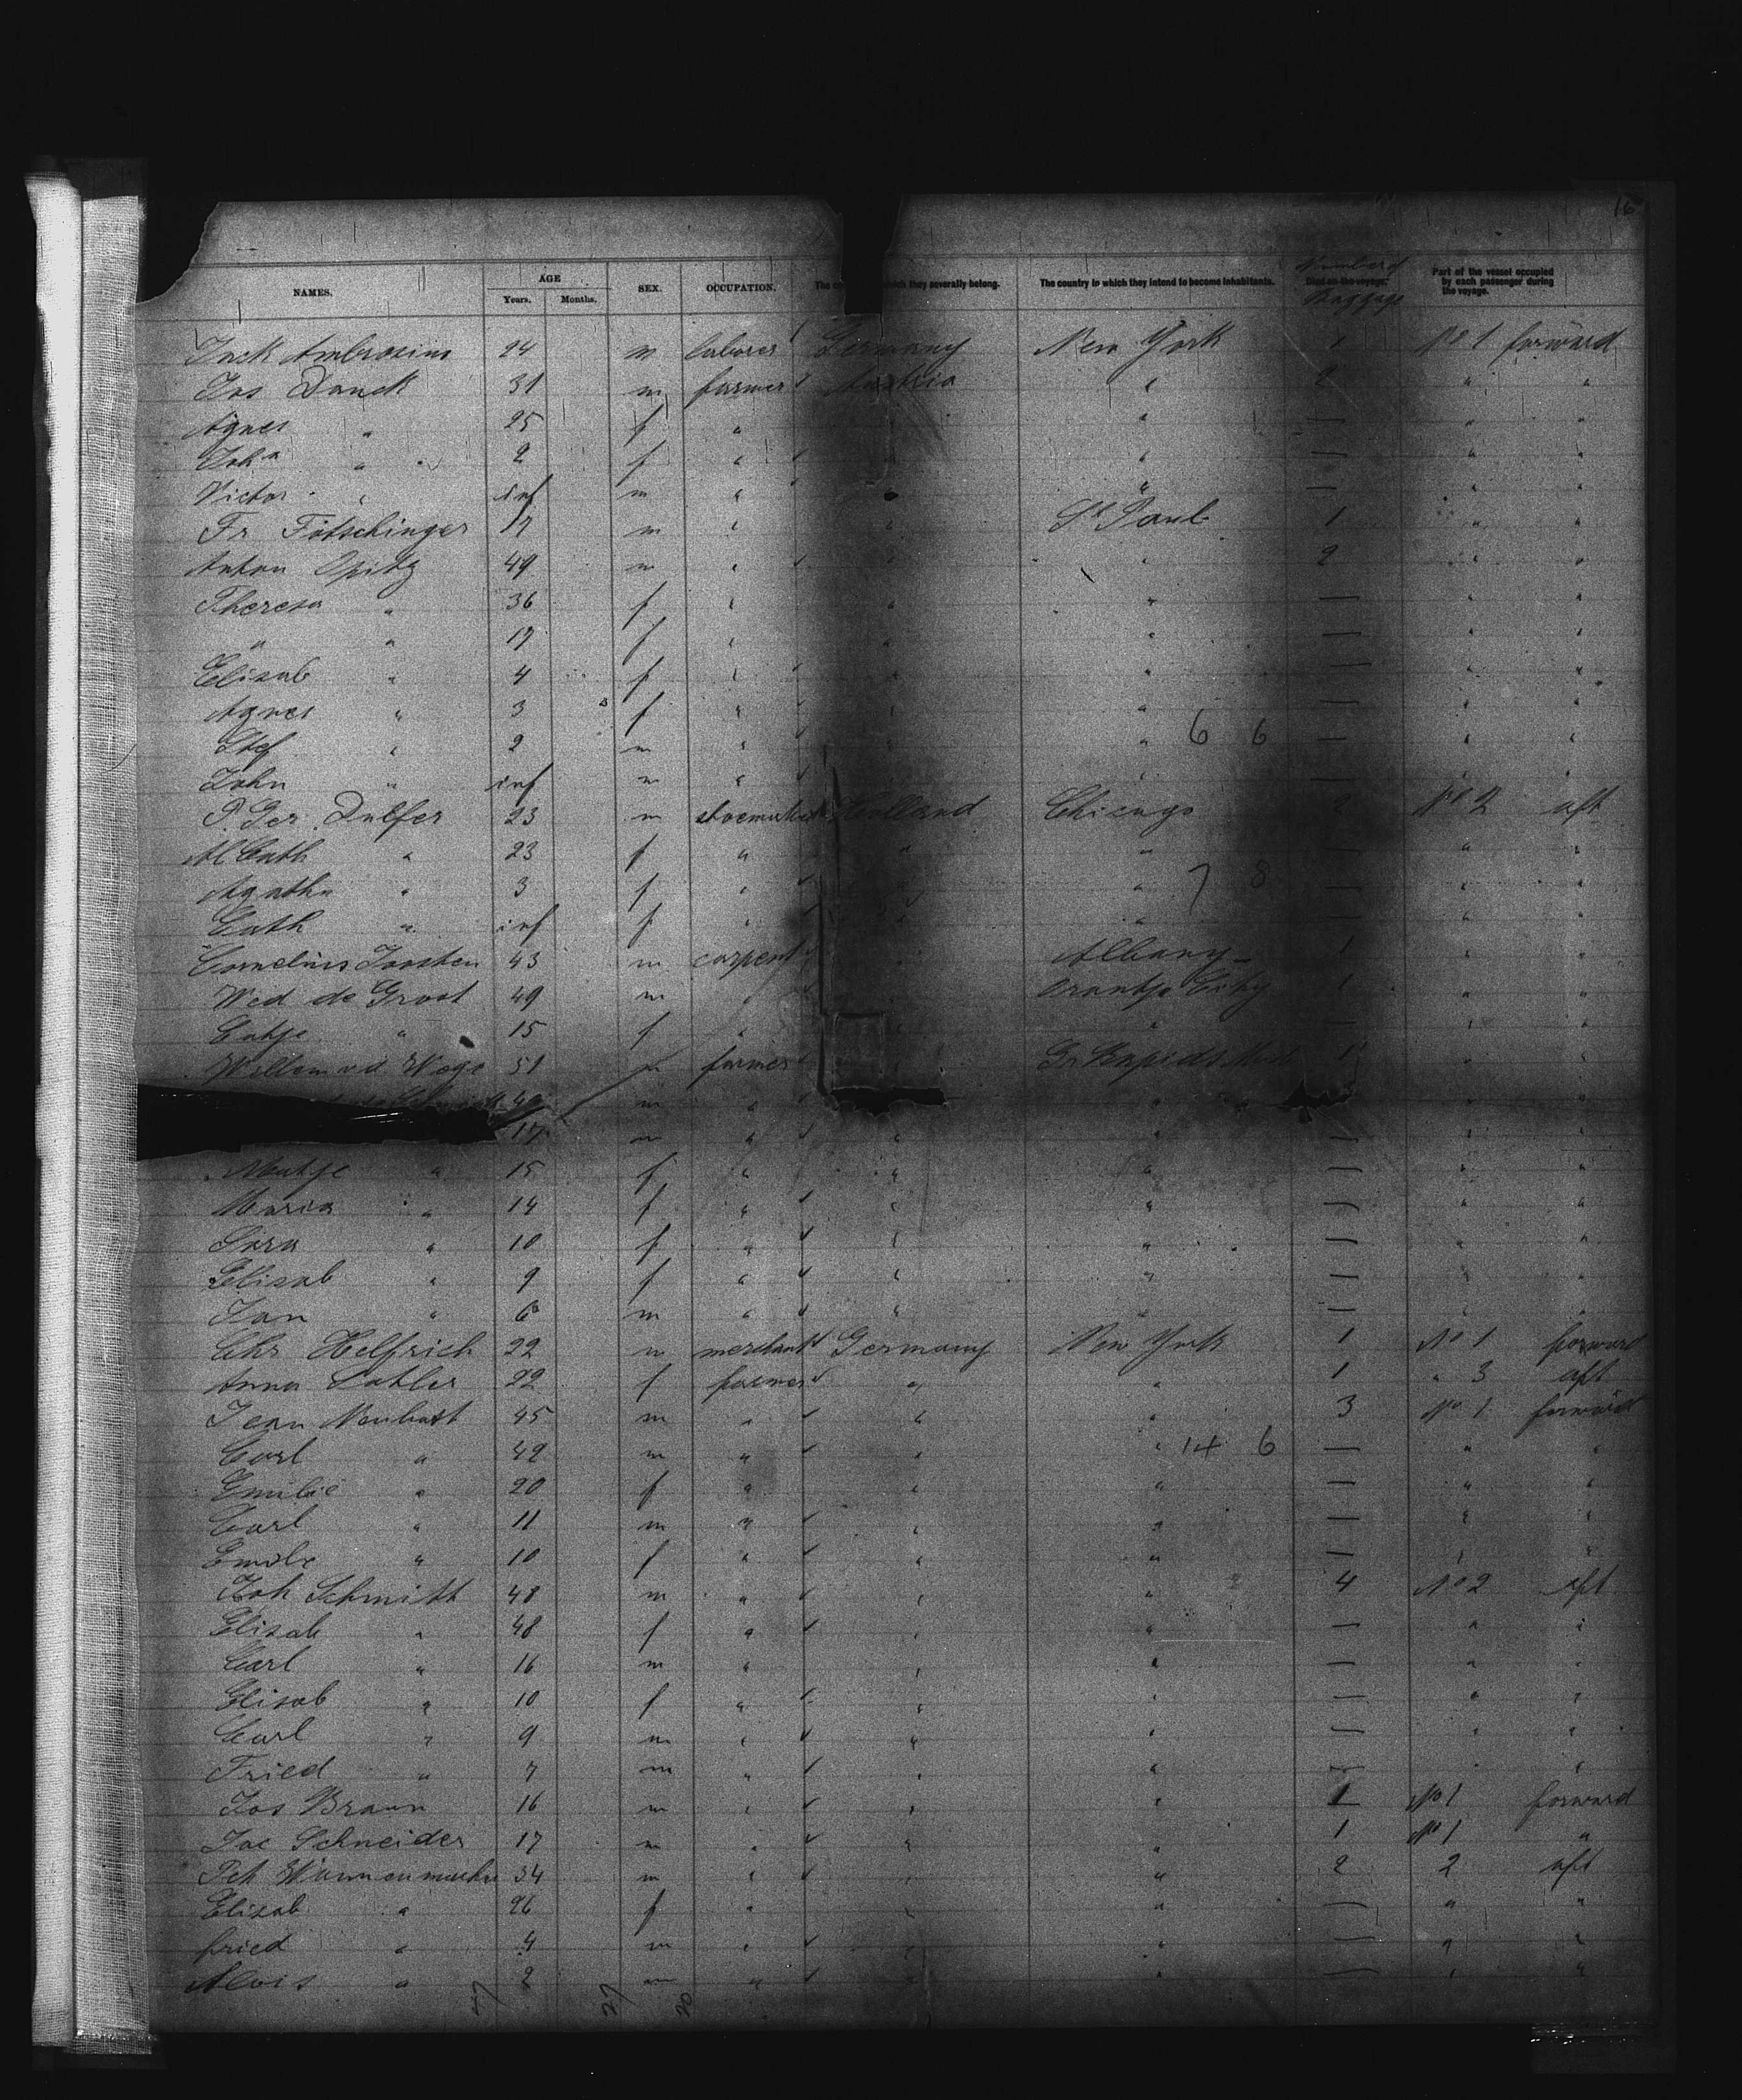 16
NAMES. AGE Years. Months. SEX. OCCUPATION. The co which they severally belong. The country to which they intend to become inhabitants. Number of Baggage Died on the voyage. Part of the vessel occupied by each passenger during the voyage.
Jack Ambrosius 24 m laborer Germany New York 1 No 1 forward
Jos Danek 31 m farmer Austria " 2 " "
Agnes " 25 f " " " — " "
Joha " 2 f " " " — " "
Victor " inf m " " " — " "
Fr. Fötschinger 17 m " " St Paul 1 " "
Anton Opitz 49 m " " " 2 " "
Theresa " 36 f " " " — " "
" " 17 f " " " — " "
Elisab " 4 f " " " — " "
Agnes " 3 f " " " — " "
Stef " 2 m " " " 6 6 — " "
John " inf m " " " — " "
P. Ger. Dulfer 23 m shoemaker Holland Chicago 2 No 2 aft
M Cath " 23 f " " " — " "
Agatha " 3 f " " " 7 8 — " "
Cath " inf f " " " — " "
Cornelius Joosten 43 m carpent " Albany 1 " "
Wed de Groot 49 m " " Orantje City 1 " "
Catje " 15 f " " " — " "
Willem v.d. Wege 51 m farmer " Gr Rapids Mich 1 " "
m " " "
17 m " " " — " "
Matje " 15 f " " " — " "
Maria " 14 f " " " — " "
Sara " 10 f " " " — " "
Elisab " 9 f " " " — " "
Jan " 6 m " " " — " "
Chr Helfrich 22 m merchant Germany New York 1 No 1 forward
Anna Sattler 22 f farmer " " 1 " 3 aft
Jean Neubert 45 m " " " 3 No 1 forward
Carl " 42 m " " " 14 6 — " "
Emilie " 20 f " " " — " "
Carl " 11 m " " " — " "
Emilie " 10 f " " " — " "
Joh Schmitt 48 m " " " 4 No 2 aft
Elisab " 48 f " " " — " "
Carl " 16 m " " " — " "
Elisab " 10 f " " " — " "
Carl " 9 m " " " — " "
Fried " 7 m " " " — " "
Jos Braun 16 m " " " 1 No 1 forward
Jac Schneider 17 m " " " 1 No 1 "
Pet Wannenmacher 34 m " " " 2 2 aft
Elisab " 26 f " " " — " "
fried " 4 m " " " — " "
Alois " 2 m " " " — " "
47 27 20